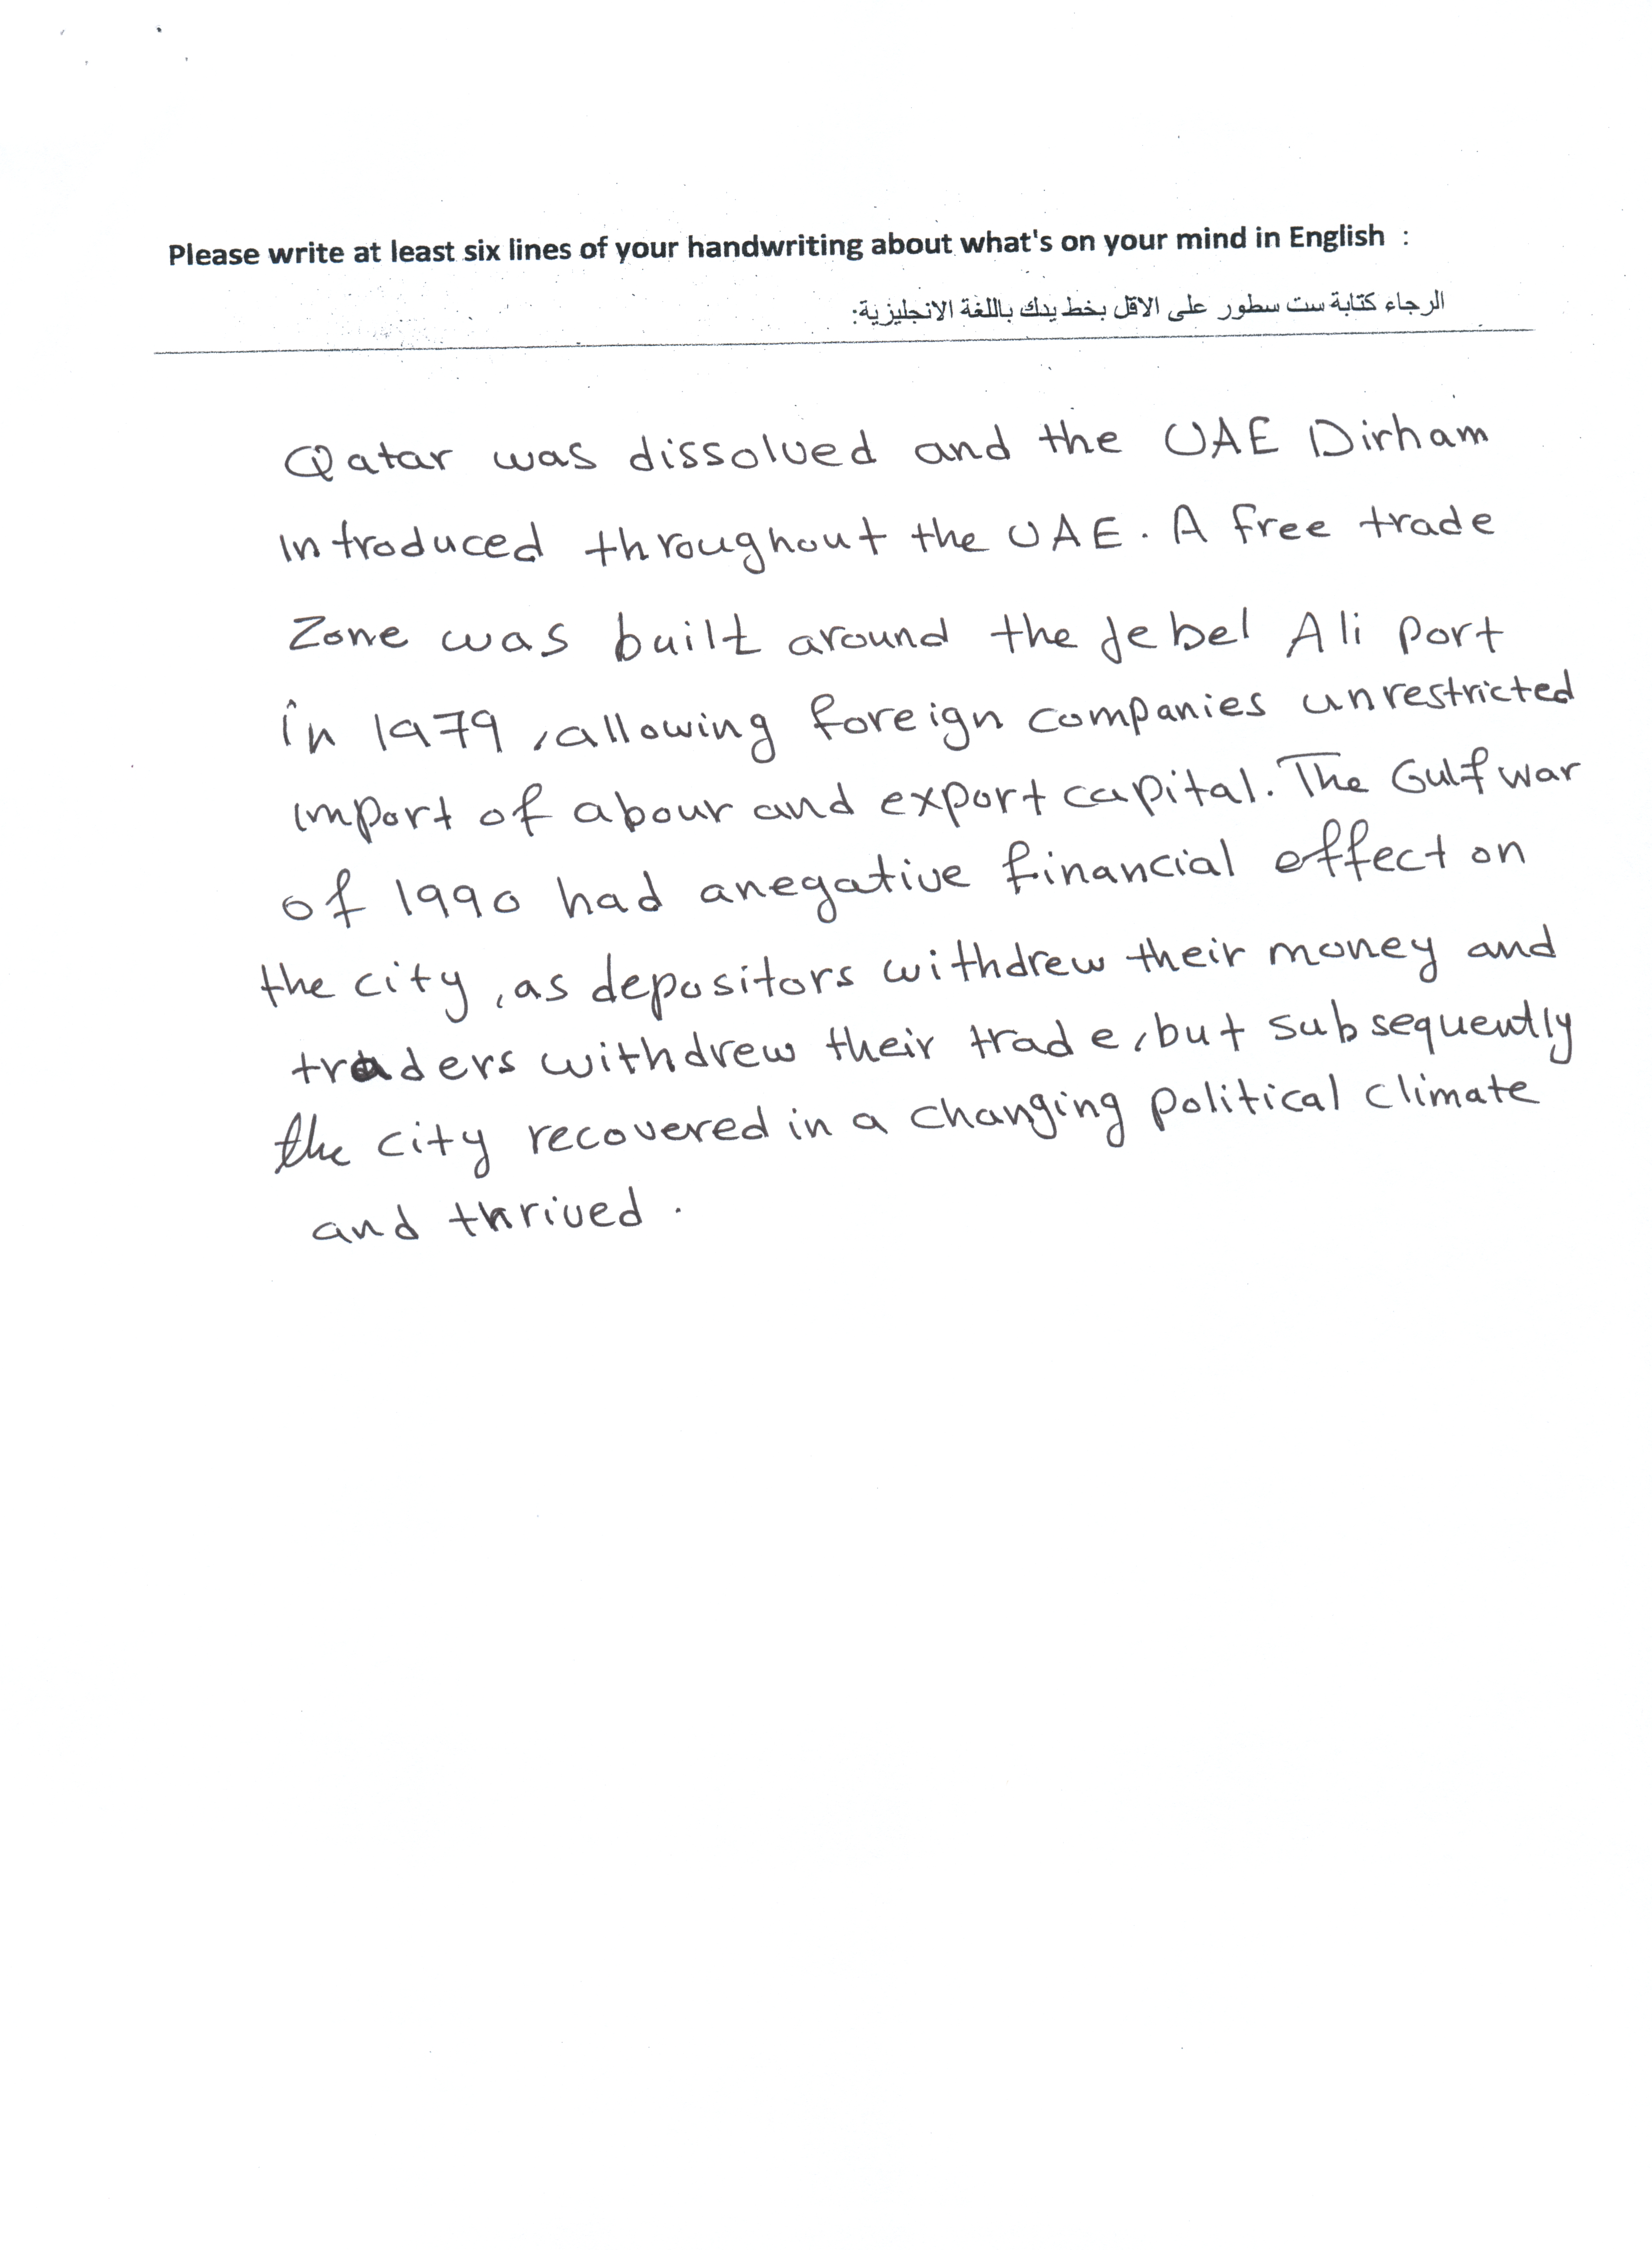 Please write at least six lines of your handwriting about what's on your mind in English :
الرجاء كتابة ست سطور على الاقل بخط يدك باللغة الانجليزية:
Qatar was dissolved and the UAE Dirham
introduced throughout the UAE. A free trade
Zone was built around the Jebel Ali Port
in 1979, allowing foreign companies unrestricted
import of abour and export capital. The Gulf war
of 1990 had anegative financial effect on
the city, as depositors withdrew their money and
traders withdrew their trade, but subsequently
the city recovered in a changing political climate
and thrived.